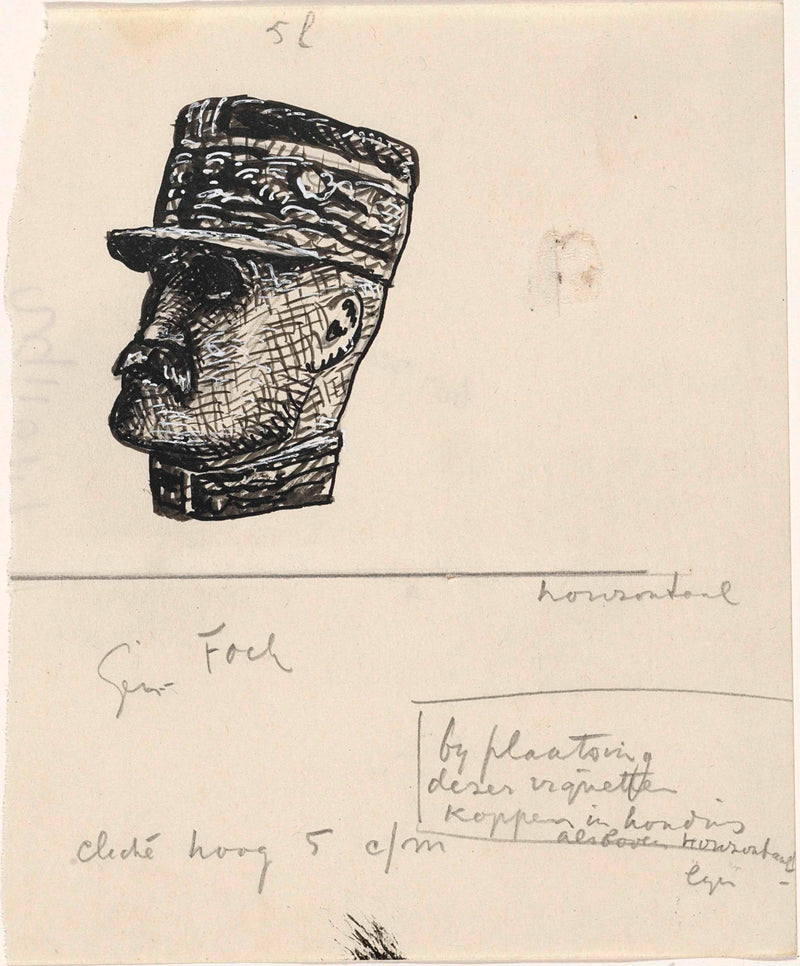 5
horizontaal
Gen. Foch
by plaatsing
dezer vignetten
koppen in
als boven horizontaal
cliché hoog 5 c/m